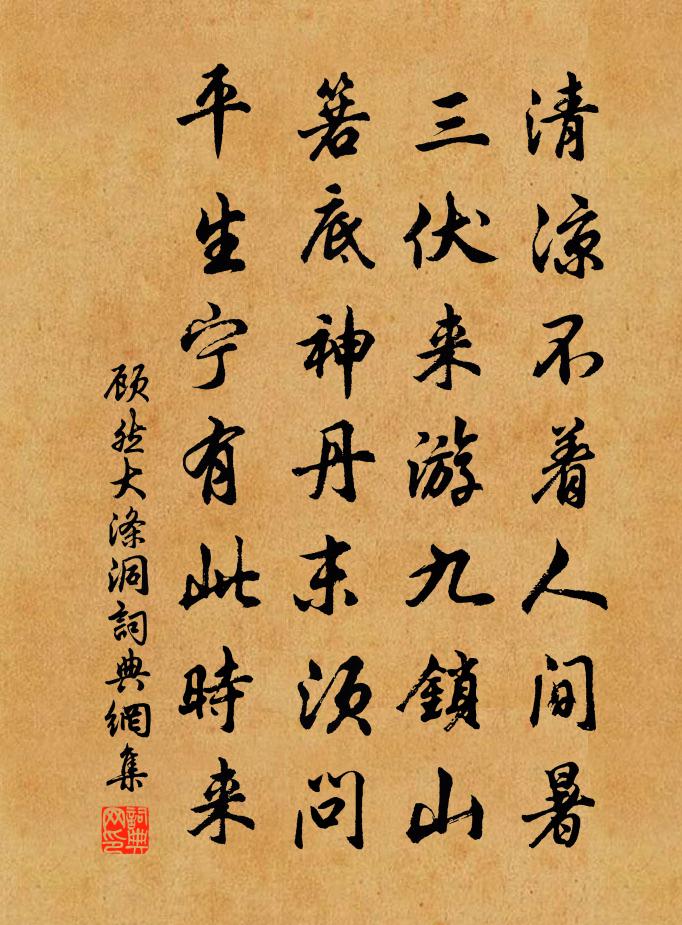 清凉不着人间暑
三伏来游九鎖山
箬底神丹未须问
平生宁有此時来
顾然大涤洞詞典網集
詞典网印